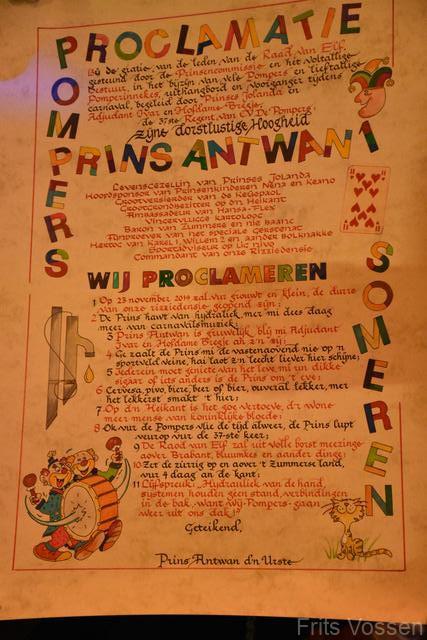 PROCLAMATIE
POMPERS
Bij de gratie van de leden van de Raad van Elf,
gesteund door de Prinsencommissie en het voltallige
Bestuur, in het bijzijn van vele Pompers en lieftallige
Pomperinnekes, uithangbord en voorganger tijdens
carnaval, begeleid door Prinses Jolanda en
Adjudant Ivar en Hofdame Bregje,
de 37ste Regent van CV De Pompers,
zijne dorstlustige Hoogheid
PRINS ANTWAN 1
Levensgezellin van Prinses Jolanda
Hoofdsponsor van Prinsenkinderen Nena en Keano
Grootversierder van de
Grootgrondbezitter op d'n Heikant
Ambassadeur van Hansa-Flex
Vingervlugge
Baron van Zummere en nie baanc
Aanvoerder van het speciale Gerstenat
Hertog van Karel 1, Willem 2 en ander bolknakke
Sportadviseur op Uc nivo
Commandant van onze Rizziedensie
WIJ PROCLAMEREN
SOMEREN
1 Op 23 november 2014 zal vur grouwt en klein, de durre
van onze rizziedensie geopend zijn;
2 De Prins hawt van hydraliek, mer mi dees daag
meer van carnavalsmuziek;
3 Prins Antwan is gruuwelijk blij mi Adjudant
Ivar en Hofdame Bregje an z'n zij;
4 Ge zaalt de Prins mi de vastenaovend nie op 'n
sportveld veine, hai laat z'n leecht liever hier schijne;
5 Iederein moet geniete van het leve, mi un dikke
sigaar of iets anders is de Prins om 't eve;
6 Cervesa, pivo, biere, beer of bier, overal lekker, mer
het lekkerst smakt 't hier;
7 Op d'n Heikant is het goe vertoeve, d'r wone
meer mense van koninklijke bloede;
8 Ok vur de Pompers vlie de tijd alweer, de Prins lupt
veurop vur de 37-ste keer;
9 De Raod van Elf zal uit volle borst meezinge
aover Brabant, bluumkes en aander dinge;
10 Zet de zurrig op en aover 't Zummerse land,
vur 4 daag an de kant;
11 Lijfspreuk: Hydrauliek van de hand,
systemen houden geen stand, verbindingen
in de bak, want wij-Pompers-gaan
weer uit ons dak!
Geteikend,
Prins Antwan d'n Urste
Frits Vossen